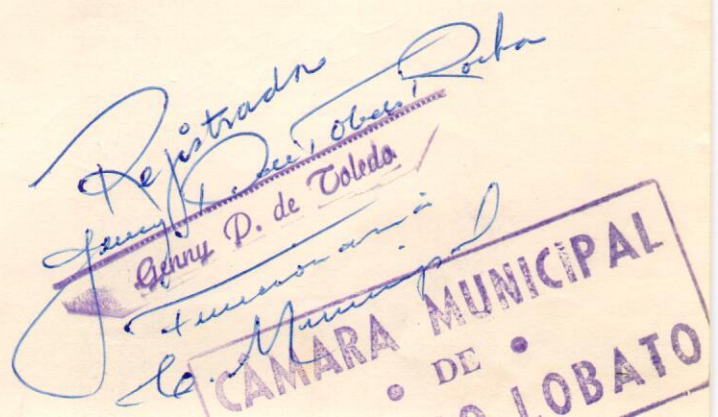 Registrado
Jenny P. de Toledo Rocha
Genny P. de Toledo
Funcionaria
C. Municipal
CAMARA MUNICIPAL
• DE •
LOBATO